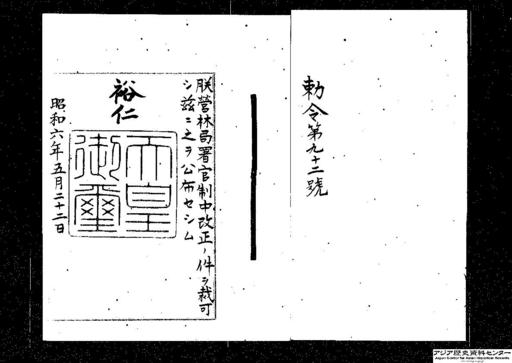 勅令第九十二號
朕營林局署官制中改正ノ件ヲ裁可
シ玆ニ之ヲ公布セシム
裕仁
天皇
御璽
昭和六年五月二十二日
アジア歴史資料センター
Japan Center for Asian Historical Records